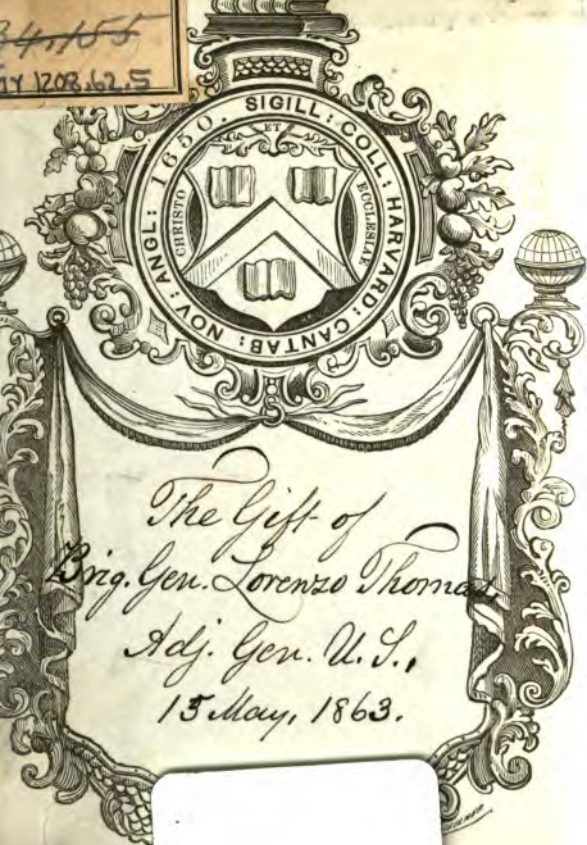 34.155
1208.62.5
SIGILL: COLL: HARVARD: CANTAB: NOV: ANGL: 1650.
ET
CHRISTO
ECCLESIAE
The Gift of
Brig. Gen. Lorenzo Thomas,
Adj. Gen. U.S.,
15 May, 1863.